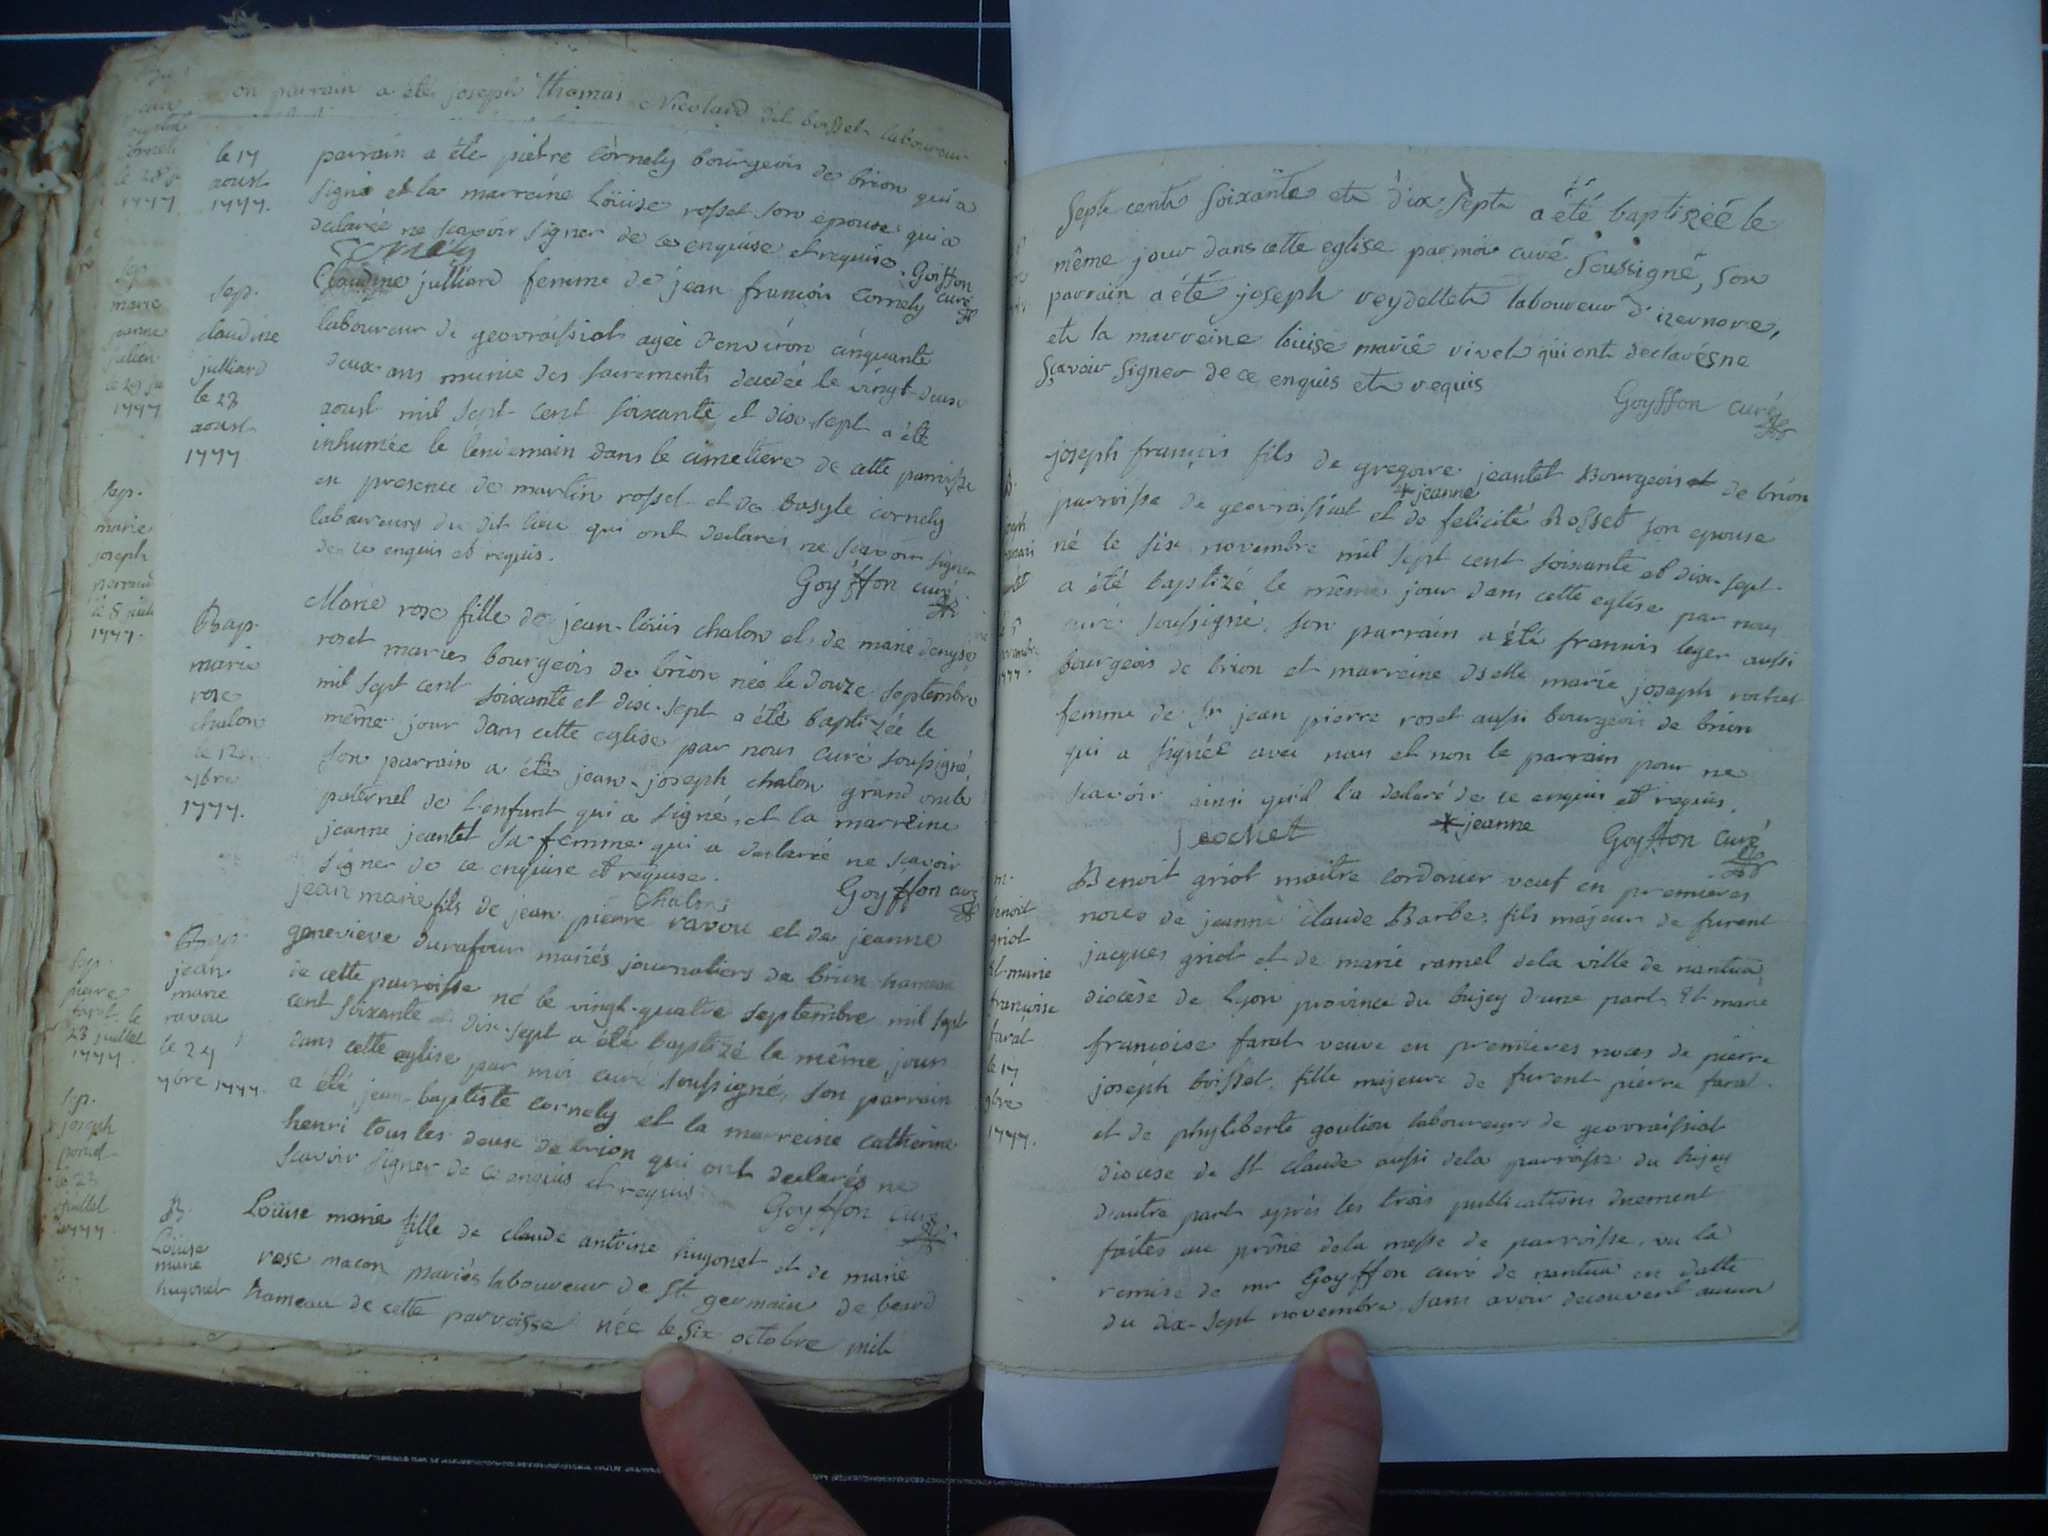 on parrain a été joseph thomas Nicoland dit boisset laboureur
le 17
aoust
1777.
parrain a été pierre Cornely bourgeois de brion qui a
signé et la marreine Loüise rosset son epouse qui a
declarée ne scavoir signer de ce enquise et requise. Goiffon
Cornely
curé
Sep.
claudine
julliard
le 23
aoust
1777
Claudine julliard femme de jean francois Cornely
laboureur de geovraissiat agée d'environ cinquante
deux ans munie des sacrements decedée le vingt-deux
aoust mil sept cent soixante et dix sept a été
inhumée le lendemain dans le cimetiere de cette parroisse
en presence de martin rosset et de basyle cornely
laboureurs du dit lieu qui ont declarés ne scavoir signer
de ce enquis et requis.
Goyffon curé
Bap.
marie
rose
chalon
le 12
7bre
1777.
Marie rose fille de jean-loüis chalon et de marie denyse
roset mariés bourgeois de brion née le douze septembre
mil sept cent soixante et dix-sept a été baptizée le
même jour dans cette eglise par nous curé soussigné
son parrain a été jean-joseph chalon grand oncle
paternel de l'enfant qui a signé, et la marreine
jeanne jeantet sa femme qui a declarée ne scavoir
signer de ce enquise et requise.
Chalon
Goyffon curé
Bap
jean
marie
ravou
le 24
7bre 1777.
jean marie fils de jean pierre ravou et de jeanne
genevieve durafour mariés journaliers de brion hameau
de cette parroisse né le vingt-quatre septembre mil sept
cent soixante et dix-sept a été baptizé le même jour
dans cette eglise par moi curé soussigné, son parrain
a été jean-baptiste cornely et la marreine catherine
henri tous les deux de brion qui ont declarés ne
scavoir signer de ce enquis et requis
Goyffon curé
B.
Loüise
marie
hugonet
Loüise marie fille de claude antoine hugonet et de marie
rose macon mariés laboureur de St germain de beard
hameau de cette parroisse née le six octobre mil
Sep
marie
1777
bap.
marie
joseph
perraud
1777.
Sep.
pierre
farat le
23 juillet
1777.
joseph
le 23
juillet
1777.
sept cent soixante et dix sept a été baptizéé le
même jour dans cette eglise par moi curé soussigné, son
parrain a été joseph veydellet laboureur d'izernore,
et la marreine loüise marie vivet qui ont declarés ne
sçavoir signer de ce enquis et requis
Goyffon curé
joseph françois fils de gregoire jeantet Bourgeois de brion
*jeanne
parroisse de geovraissiat et de felicité Rosset son epouse
né le six novembre mil sept cent soixante et dix-sept
a été baptizé le même jour dans cette eglise par nous
curé soussigné, son parrain a été francois leger aussi
bourgeois de brion et marreine dselle marie joseph rochet
femme de Sr jean pierre roset aussi bourgeois de brion
qui a signée avec nous et non le parrain pour ne
scavoir ainsi qu'il l'a declaré de ce enquis et requis.
Jeochet
*jeanne
Goyffon Curé
m.
benoit
griot
et marie
françoise
farat
le 17
9bre
1777.
Benoit griot maitre cordonier veuf en premieres
noces de jeanne Claude Barbe, fils majeur de furent
jacques griot et de marie ramel de la ville de nantua
diocèse de Lyon province du bujey d'une part Et marie
francoise farat veuve en premieres noces de pierre
joseph boisset, fille majeure de furent pierre farat
et de phyliberte goutiou laboureurs de geovraissiat
diocèse de St claude aussi dela parroisse du bujey
d'autre part après les trois publications duement
faites au prône dela messe de parroisse, vu la
remise de mr Goyffon curé de nantua en datte
du dix-sept novembre sans avoir decouvert aucun